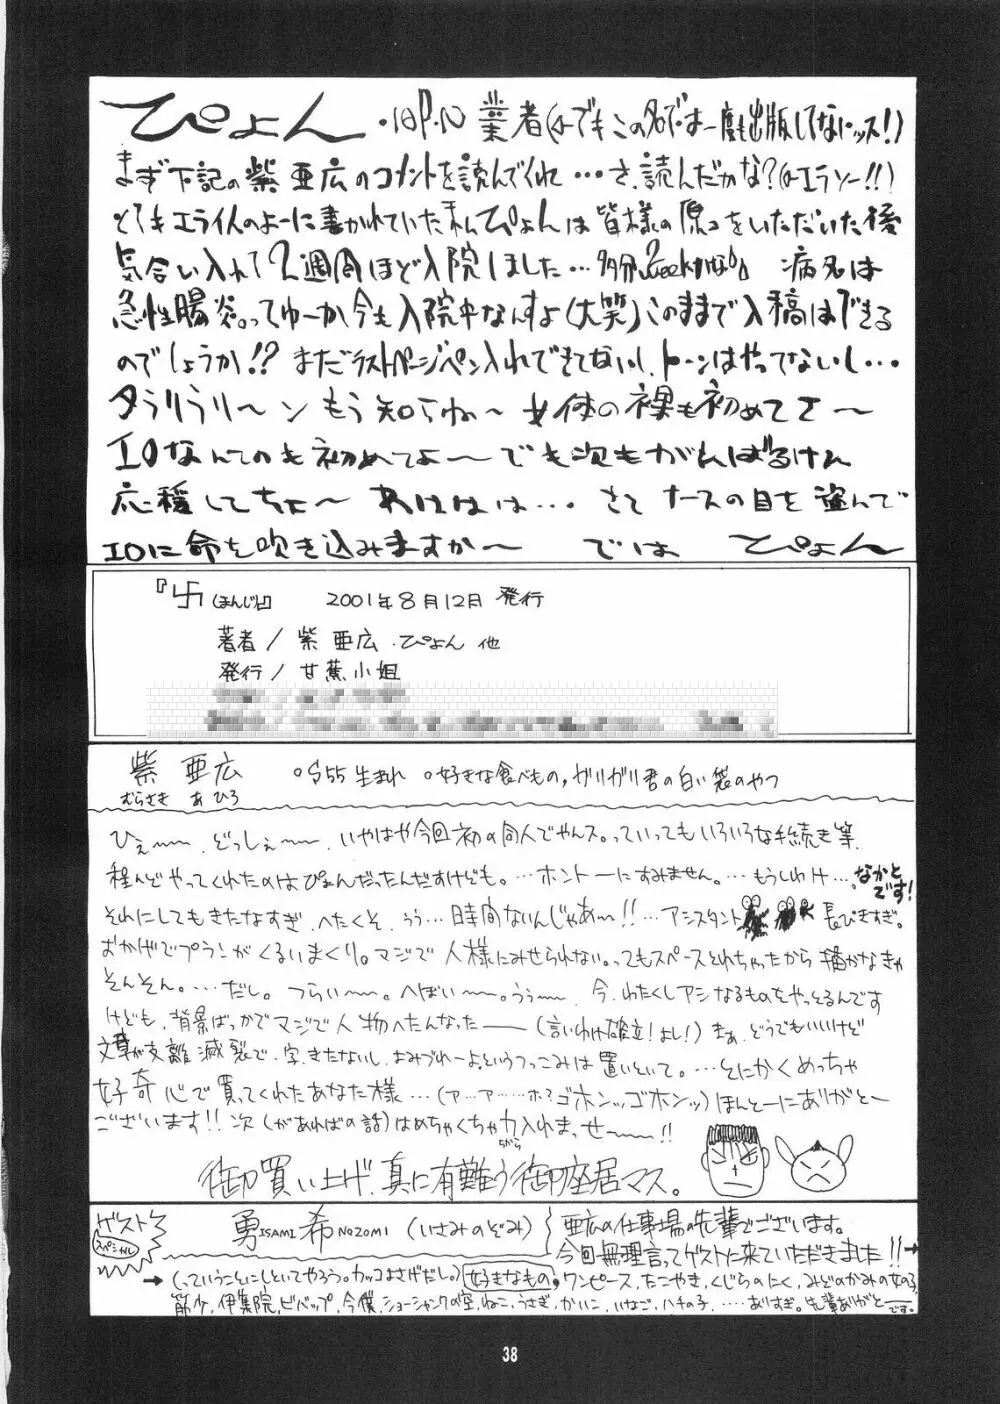 ぴょん ・18P.N 業者(←でもこの名では一度も出版してないッス!)
まず下記の紫亜広のコメントを読んでくれ…さ、読んだかな?(←エラソー!!)
とてもエライ人のよーに書かれていた私ぴょんは皆様の原コをいただいた後
気合い入れて2週間ほど入院しました…多分2weekかな。 病名は
急性腸炎。ってゆーか今も入院中なんすよ(大笑)このままで入稿はできる
のでしょうか!? まだラストページペン入れできてないし、トーンはやってないし…
タラリラリ〜ン もう知らね〜 女体の裸も初めてさ〜
エロなんてのも初めてよ〜 でも次もがんばるけん
応援してちょ〜 あははは… さてナースの目を盗んで
エロに命を吹き込みますか〜 では ぴょん
『卐(まんじ)』 2001年8月12日 発行
著者/紫 亜広・ぴょん 他
発行/甘蕉小姐
紫 亜広 ○S55生まれ ○好きな食べもの,ガリガリ君の白い袋のやつ
むらさき あひろ
ひえ〜〜、どっしぇ〜〜、いやはや今回初の同人でやんス。っていってもいろいろな手続き等、
殆んどやってくれたのはぴょんだったんだすけども。…ホントーにすみません。…もうしわけ…なかとです!
それにしてもきたなすぎ、へたくそ、うぅ…時間ないんじゃあ〜!!…アシスタント 長びきすぎ。
おかげでプランがくるいまくり。マジで人様にみせられない。ってもスペースとれちゃったから描かなきゃ
そんそん。…だし。つらい〜〜。へぼい〜〜。うぅ〜〜、今、わたくしアシなるものをやってるんです
けども、背景ばっかでマジで人物へたんなった――(言いわけ確立!よし!)まぁ、どうでもいいけど
文章が支離滅裂で、字、きたないし、よみづれーよ。というつっこみは置いといて。…とにかくめっちゃ
好奇心で買ってくれたあなた様…(ア…ア……ホ?ゴホンッゴホンッ)ほんとーにありがとー
ございます!!次(があればの話)はめちゃくちゃ力入れまっせ〜〜!!
御買い上げ、真に有難う御座居マス。
ゲスト スペシャル 勇ISAMI 希NOZOMI (いさみのぞみ) 亜広の仕事場の先輩でございます。
今回無理言ってゲストに来ていただきました!!→
→(っていうことにしといてやろう。カッコよさげだし。) 好きなもの, ワンピース、たこやき、くじらのにく、みどりのかみの女の子、
筋少、伊集院、ビバップ、今僕、ショーシャンクの空、ねこ、うさぎ、かいこ、いなご、ハチの子、……ありすぎ。先輩ありがとーです。
38